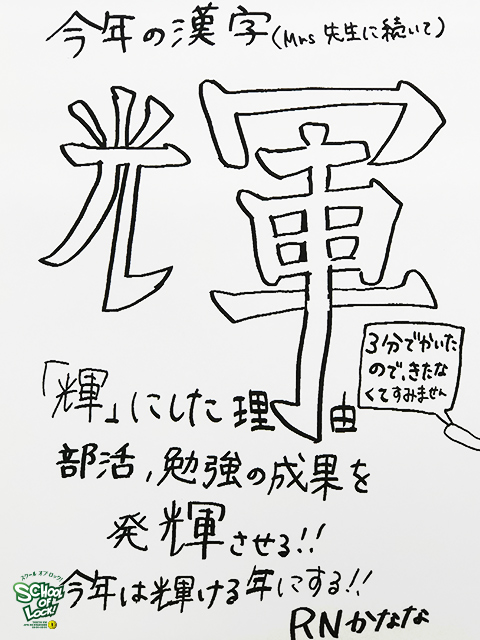 今年の漢字(Mrs 先生に続いて)
輝
3分でかいた
ので、きたな
くてすみません
「輝」にした理由
部活,勉強の成果を
発輝させる!!
今年は輝ける年にする!!
RNかななな
スクール オブ ロック!
SCHOOL
OF
LOCK!